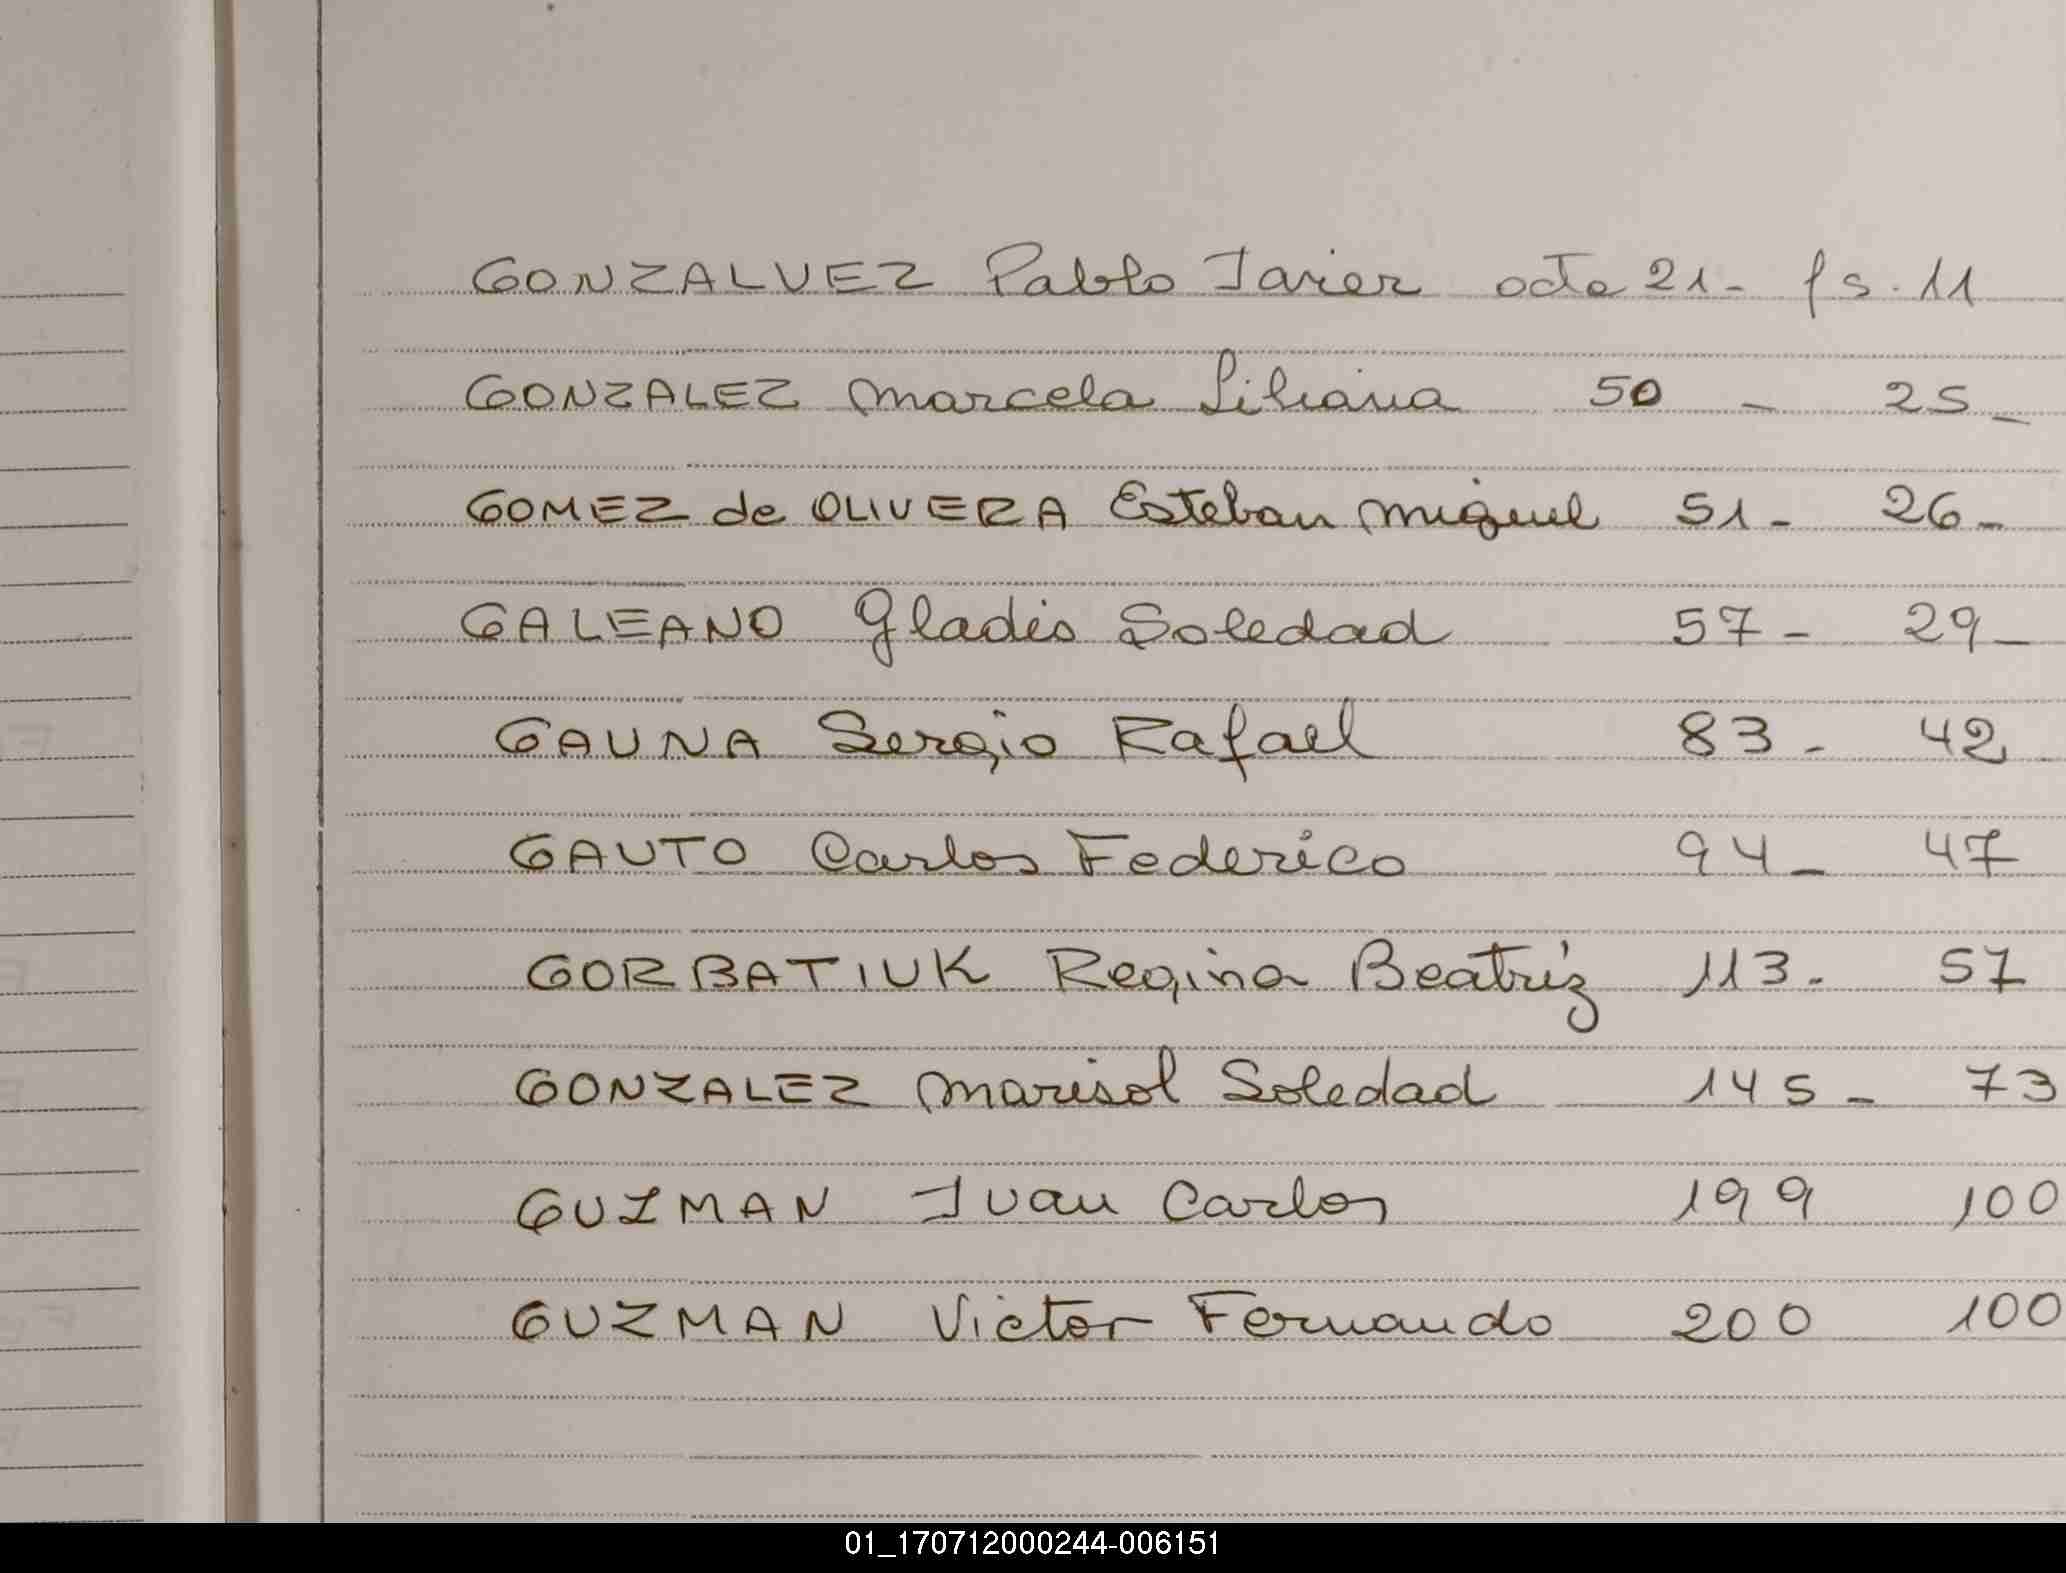 GONZALVEZ Pablo Javier acta 21- fs. 11
GONZALEZ Marcela Liliana 50 - 25-
GOMEZ de OLIVERA Esteban Miguel 51- 26-
GALEANO Gladis Soledad 57- 29-
GAUNA Sergio Rafael 83- 42
GAUTO Carlos Federico 94- 47
GORBATIUK Regina Beatriz 113- 57
GONZALEZ Marisol Soledad 145- 73
GUZMAN Juan Carlos 199 100
GUZMAN Victor Fernando 200 100
01_170712000244-006151